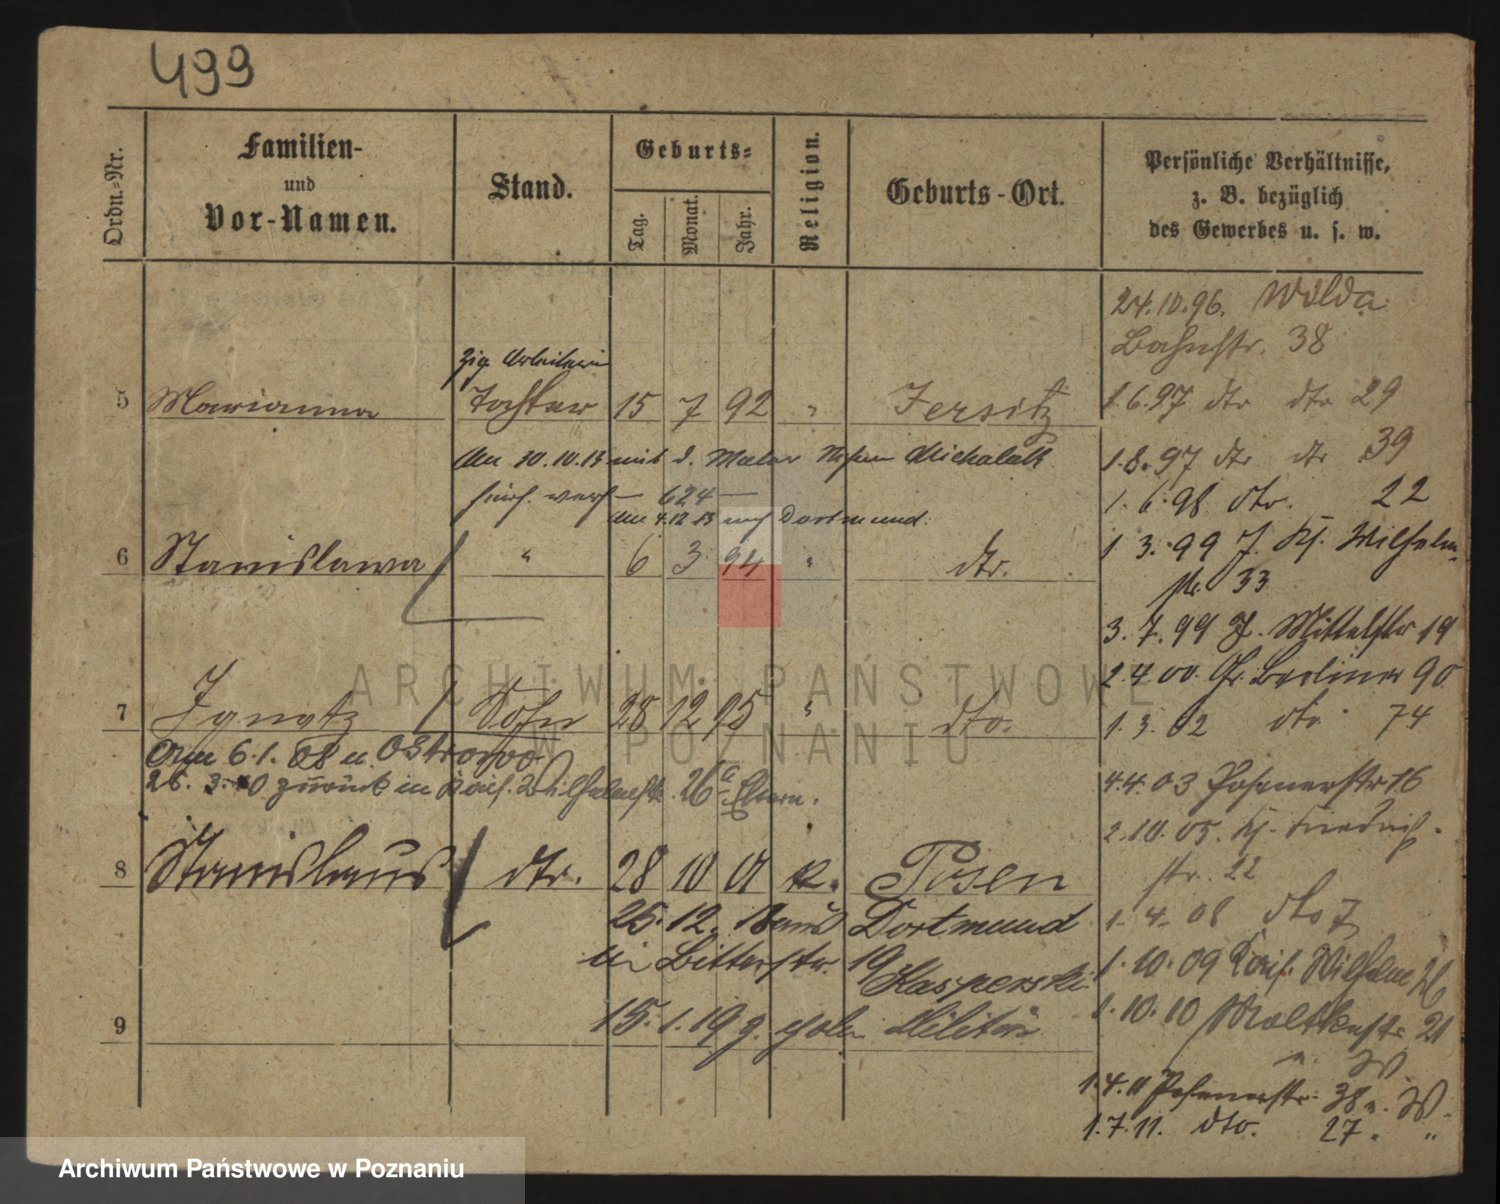 499
Ordn.-Nr.
Familien-
und
Vor-Namen.
Stand.
Geburts-
Tag.
Monat.
Jahr.
Religion.
Geburts-Ort.
Persönliche Verhältnisse,
z. B. bezüglich
des Gewerbes u. s. w.
24.10.96. Wilda
Bahnstr. 38
zig. Arbeiterin
5 Marianna Tochter 15 7 92 " Jersitz
1.6.97 dto dto 29
am 30.10.13 mit d. Maler Michalak
1.8.97 dto dto 39
624
1.6.98 dto. 22
am 4.12.13 nach Dortmund.
6 Stanislawa " 6 3 94 " dto.
1 3. 99 J. Kf. Wilhelm
str. 33
3. 7. 99 J. Mittelstr 19
2.4.00. Gr. Berliner 90
7 Ignatz Sohn 28 12 95 " dto.
1.3.02 dto 74
Am 6.1.08 n. Ostrowo
26. 3. 10 zurück in Kais. Wilhelmstr. 26 a Eltern.
4.4.03 Posenerstr 16
2.10.05. Kf. Friedrich-
str. 22
8 Stanislaus dto. 28 10 01 k. Posen
1. 4. 08 dto 7
25. 12. 18 aus Dortmund
in Bitterstr. 19
Kasperski
1. 10. 09 Kais. Wilhelm 26
15. 1. 19 z. poln Militär
1.10.10 Moltkestr 21
W
9
1.4.11 Posenerstr. 38a. W.
1.7.11. dto. 27. "
ARCHIWUM PAŃSTWOWE
W POZNANIU
Archiwum Państwowe w Poznaniu